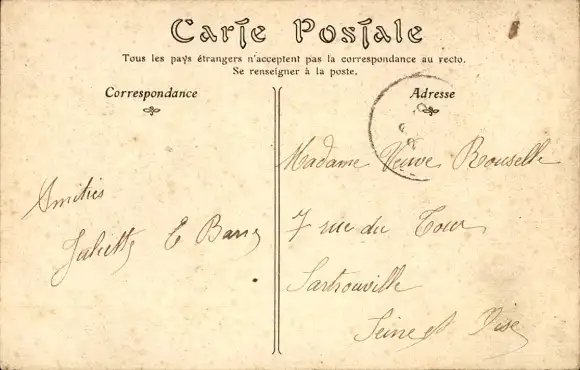 Carte Postale
Tous les pays étrangers n'acceptent pas la correspondance au recto.
Se renseigner à la poste.
Correspondance
Adresse
Amitiés
Juliette E Barry
Madame Veuve Rouselle
7 rue du Tour
Sartrouville
Seine et Oise